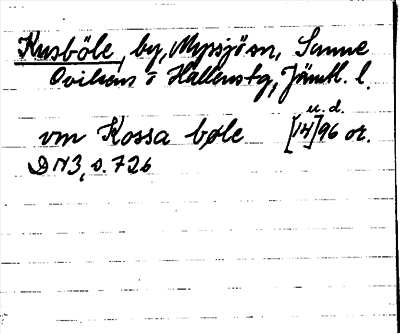 Kusböle, by, Myssjö sn, Sunne
Oviken o Hallens tg, Jämtl. l.
u. d.
vm Kossa bøle [14]96 or.
DN3, s. 726